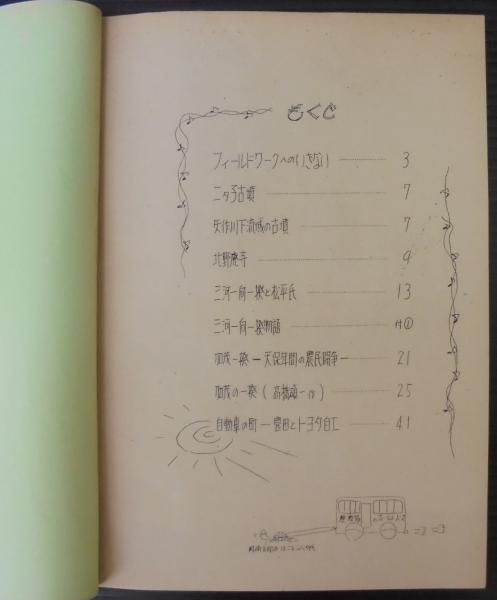 もくじ
フィールドワークへのいざない 3
二タ子古墳 7
矢作川下流域の古墳 7
北野廃寺 9
三河一向一揆と松平氏 13
三河一向一揆物語 付①
加茂一揆 ― 天保年間の農民闘争 ― 21
加茂の一揆 ( 高橋 一作) 25
自動車の町 ― 豊田とトヨタ自工 41